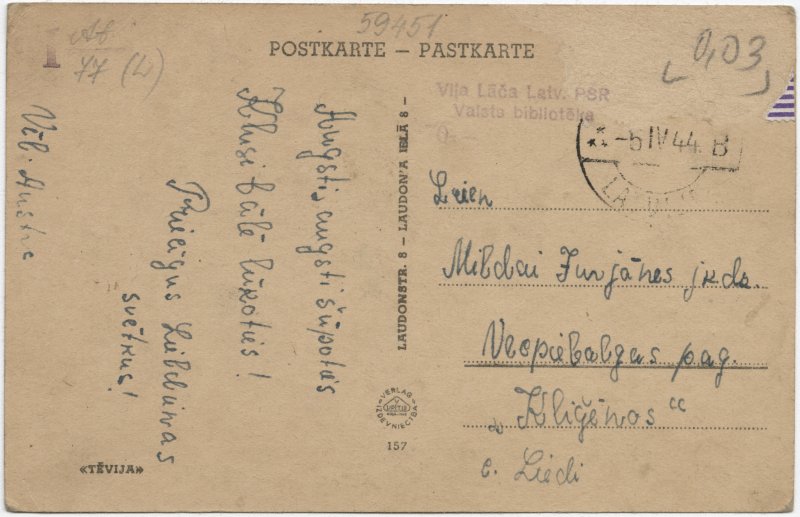 59451
At
77 (L)
0,03
POSTKARTE – PASTKARTE
Viļa Lāča Latv. PSR
Valsts bibliotēka
-5 IV 44. B
Augsti, augsti šūpoties
Klusi tālē lūkoties!
Priecīgus Lieldienas
svētkus!
Vēl. Austra
LAUDONSTR. 8 – LAUDON'A IELĀ 8 –
VERLAG
IZDEVNIECĪBA
157
«TĒVIJA»
Mildai Jurjānes jkdz.
Vecpiebalgas pag.
"Kliģēnos"
c. Liedi